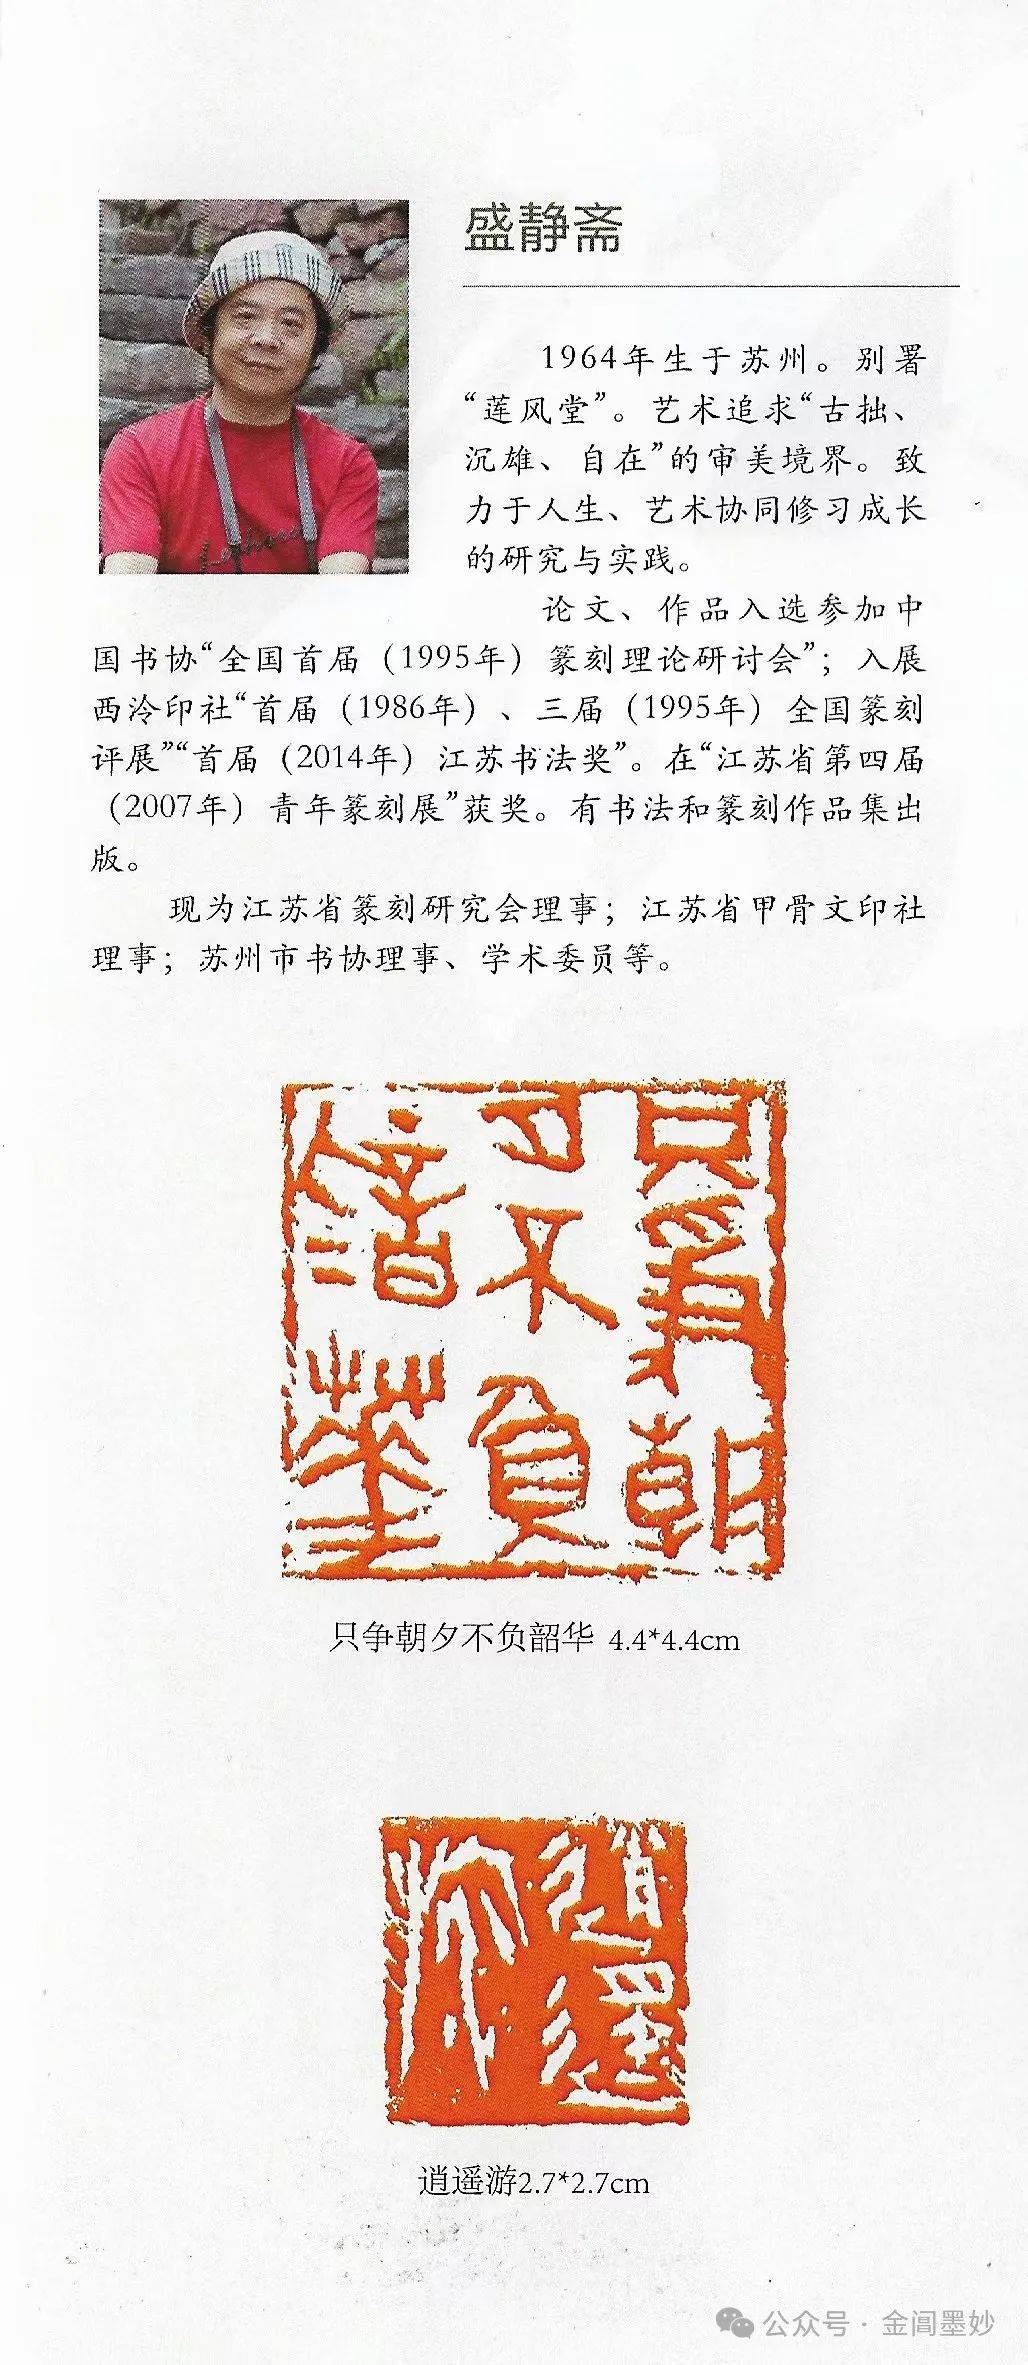 盛静斋
1964年生于苏州。别署
“莲风堂”。艺术追求“古拙、
沉雄、自在”的审美境界。致
力于人生、艺术协同修习成长
的研究与实践。
论文、作品入选参加中
国书协“全国首届（1995年）篆刻理论研讨会”；入展
西泠印社“首届（1986年）、三届（1995年）全国篆刻
评展”“首届（2014年）江苏书法奖”。在“江苏省第四届
（2007年）青年篆刻展”获奖。有书法和篆刻作品集出
版。
现为江苏省篆刻研究会理事；江苏省甲骨文印社
理事；苏州市书协理事、学术委员等。
只争朝
夕不负
韶华
只争朝夕不负韶华 4.4*4.4cm
逍遥
游
逍遥游2.7*2.7cm
公众号·金阊墨妙